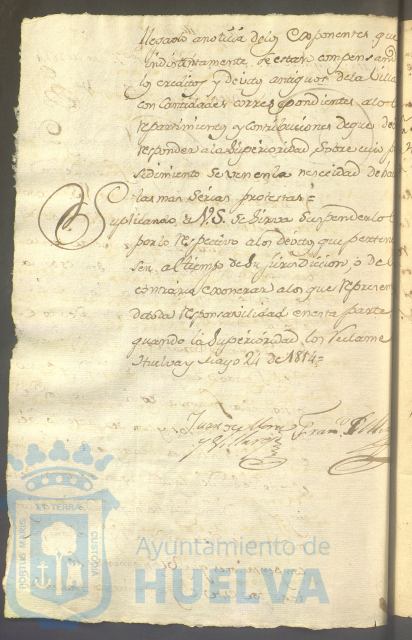 llegado a noticia de los Exponentes que
indistintamente, se estan compensand
los creditos y devitos antiguos de la Villa
con Cantidades correspondientes a los
repartimientos y contribuciones de que de
responder a la Superioridad, sobre cuio p
sedimiento se ven en la necesidad de ha
las mas serias protestas =
Suplicando a V.S. se sirva suspenderlo
por lo respectivo a los devitos que perten
sen, al tiempo de su jurisdiccion, o de l
contrario exonerar a los que represen
dadesta responsavilidad en esta parte
quando la Superioridad los reclame
Huelva y Mayo 24 de 1814 =
Juan de Fran.co
y Villar
PORTUS MARIS ET TERRAE CUSTODIA
Ayuntamiento de
HUELVA